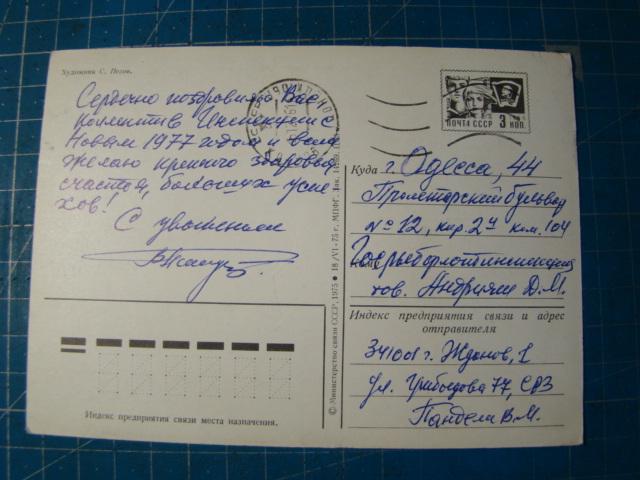 Художник С. Пегов.
Сердечно поздравляю Вас
коллектив Инспекции с
Новым 1977 годом и всем
желаю крепкого здоровья
счастья, больших успе-
хов!
С уважением
ПОЧТА СССР 3 КОП.
Куда г. Одесса, 44
Пролетарский бульвар
№ 12, кор. 2ч ком. 104
Кому
тов. Андрияш Д.М.
Индекс предприятия связи и адрес
отправителя
341001 г. Жданов, 1
ул. Грибоедова 77, СРЗ
Пандела В.М.
Индекс предприятия связи места назначения.
© Министерство связи СССР, 1975 • 18/VI-75 г. МПФГ.